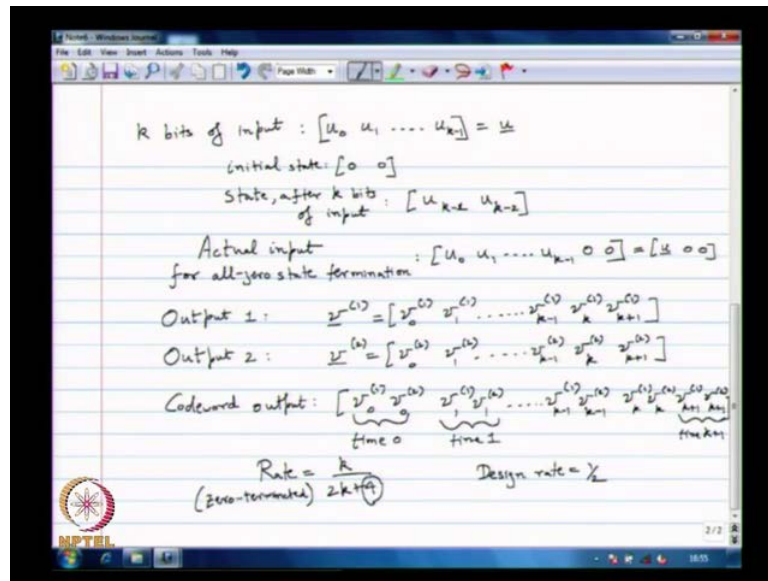 Note6 - Windows Journal
File Edit View Insert Actions Tools Help
Page Width
k bits of input : [u₀ u₁ .... u_{k-1}] = u
initial state: [0 0]
State, after k bits : [u_{k-1} u_{k-2}]
of input
Actual input : [u₀ u₁ .... u_{k-1} 0 0] = [u 0 0]
for all-zero state termination
Output 1: v^{(1)} = [v₀^{(1)} v₁^{(1)} ...... v_{k-1}^{(1)} v_k^{(1)} v_{k+1}^{(1)}]
Output 2: v^{(2)} = [v₀^{(2)} v₁^{(2)} ...... v_{k-1}^{(2)} v_k^{(2)} v_{k+1}^{(2)}]
Codeword output: [v₀^{(1)} v₀^{(2)} v₁^{(1)} v₁^{(2)} ..... v_{k-1}^{(1)} v_{k-1}^{(2)} v_k^{(1)} v_k^{(2)} v_{k+1}^{(1)} v_{k+1}^{(2)}]
time 0 time 1 time k+1
Rate = k / (2k+4) Design rate = 1/2
(zero-terminated)
NPTEL
2/2
16:55